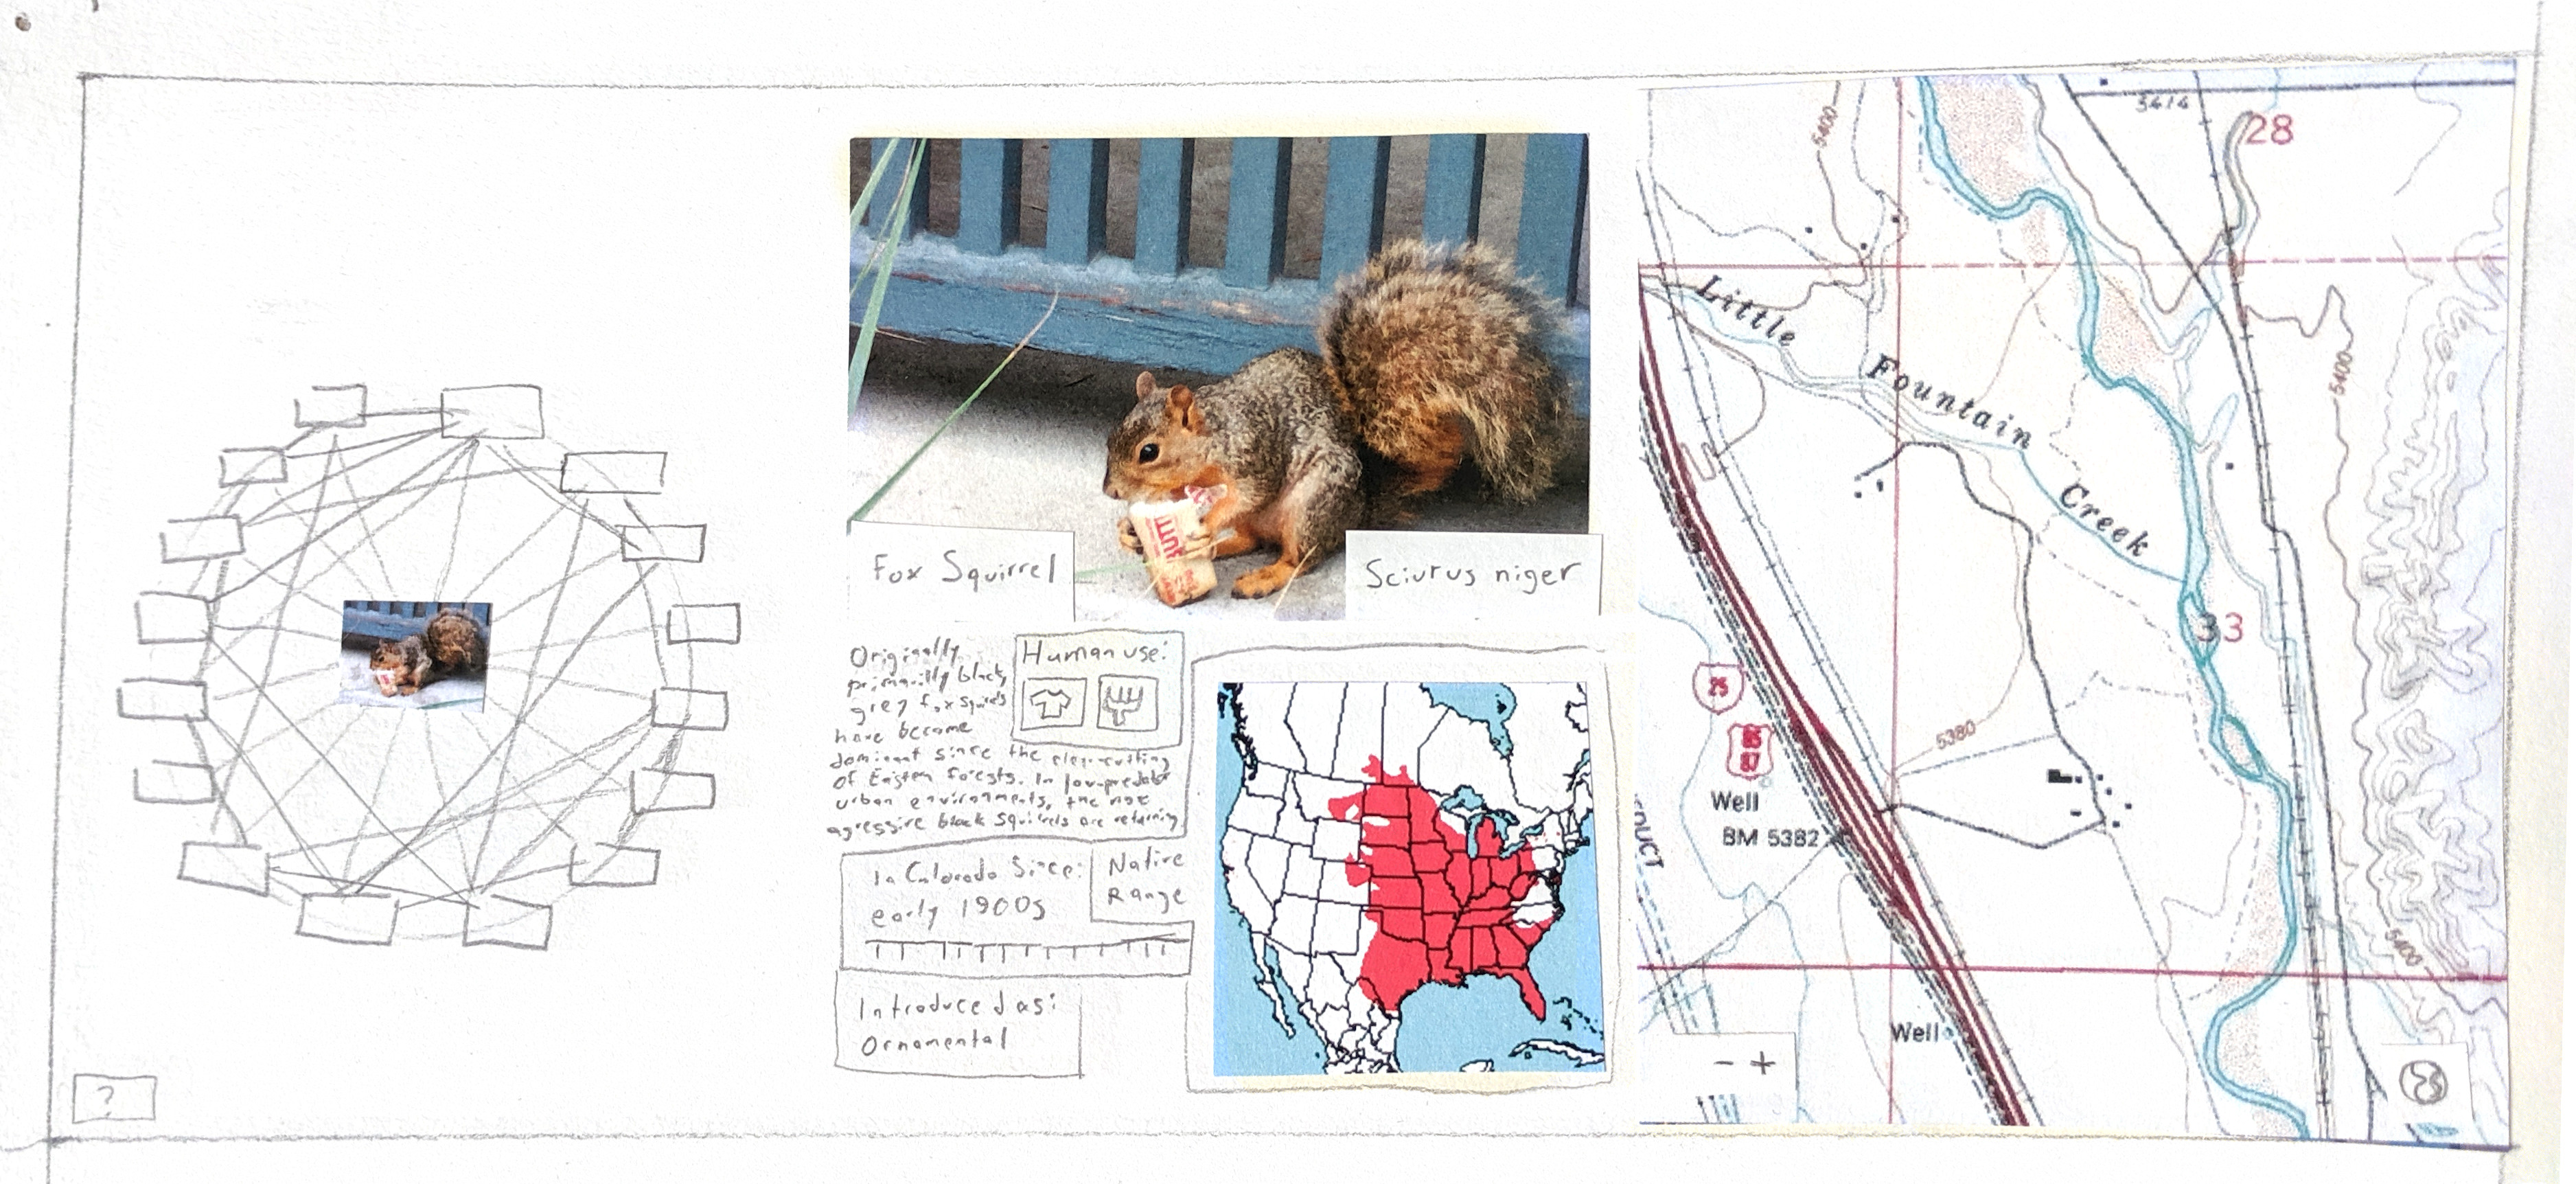 Fox Squirrel
Sciurus niger
Originally
primarily black,
grey fox squirrels
have become
dominant since the clear-cutting
of Eastern forests. In low-predator
urban environments, the
agressive black squirrels are returning
Human use:
In Colorado Since:
early 1900s
Native
Range
Introduced as:
Ornamental
?
5400
3414
28
Little Fountain Creek
5400
33
25
85
87
5380
Well
BM 5382
DUCT
5400
Well
- +